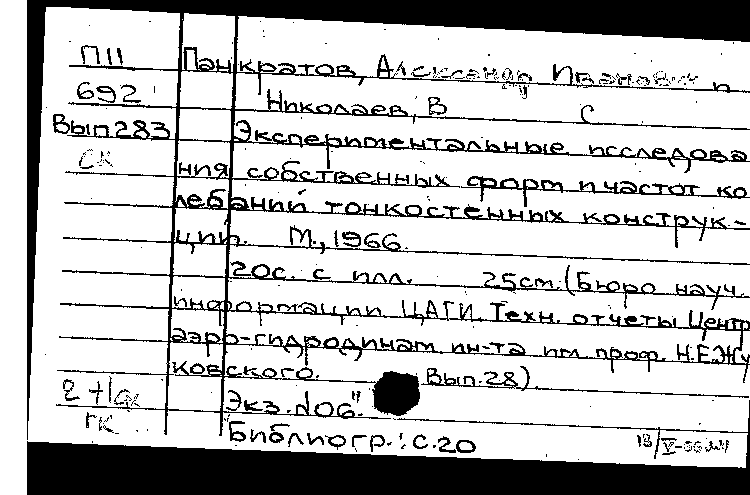 П11 Панкратов, Александр Иванович и
692 Николаев, В С
Вып 283 Экспериментальные исследова
СК ния собственных форм и частот ко
лебаний тонкостенных конструк-
ции. М., 1966.
20с. с илл. 25см. (Бюро науч.
информации ЦАГИ. Техн. отчеты Центр
аэро-гидродинам. ин-та им. проф. Н.Е.Жу
ковского. Вып. 28).
2 + Экз. №06."
ГК Библиогр.: с. 20